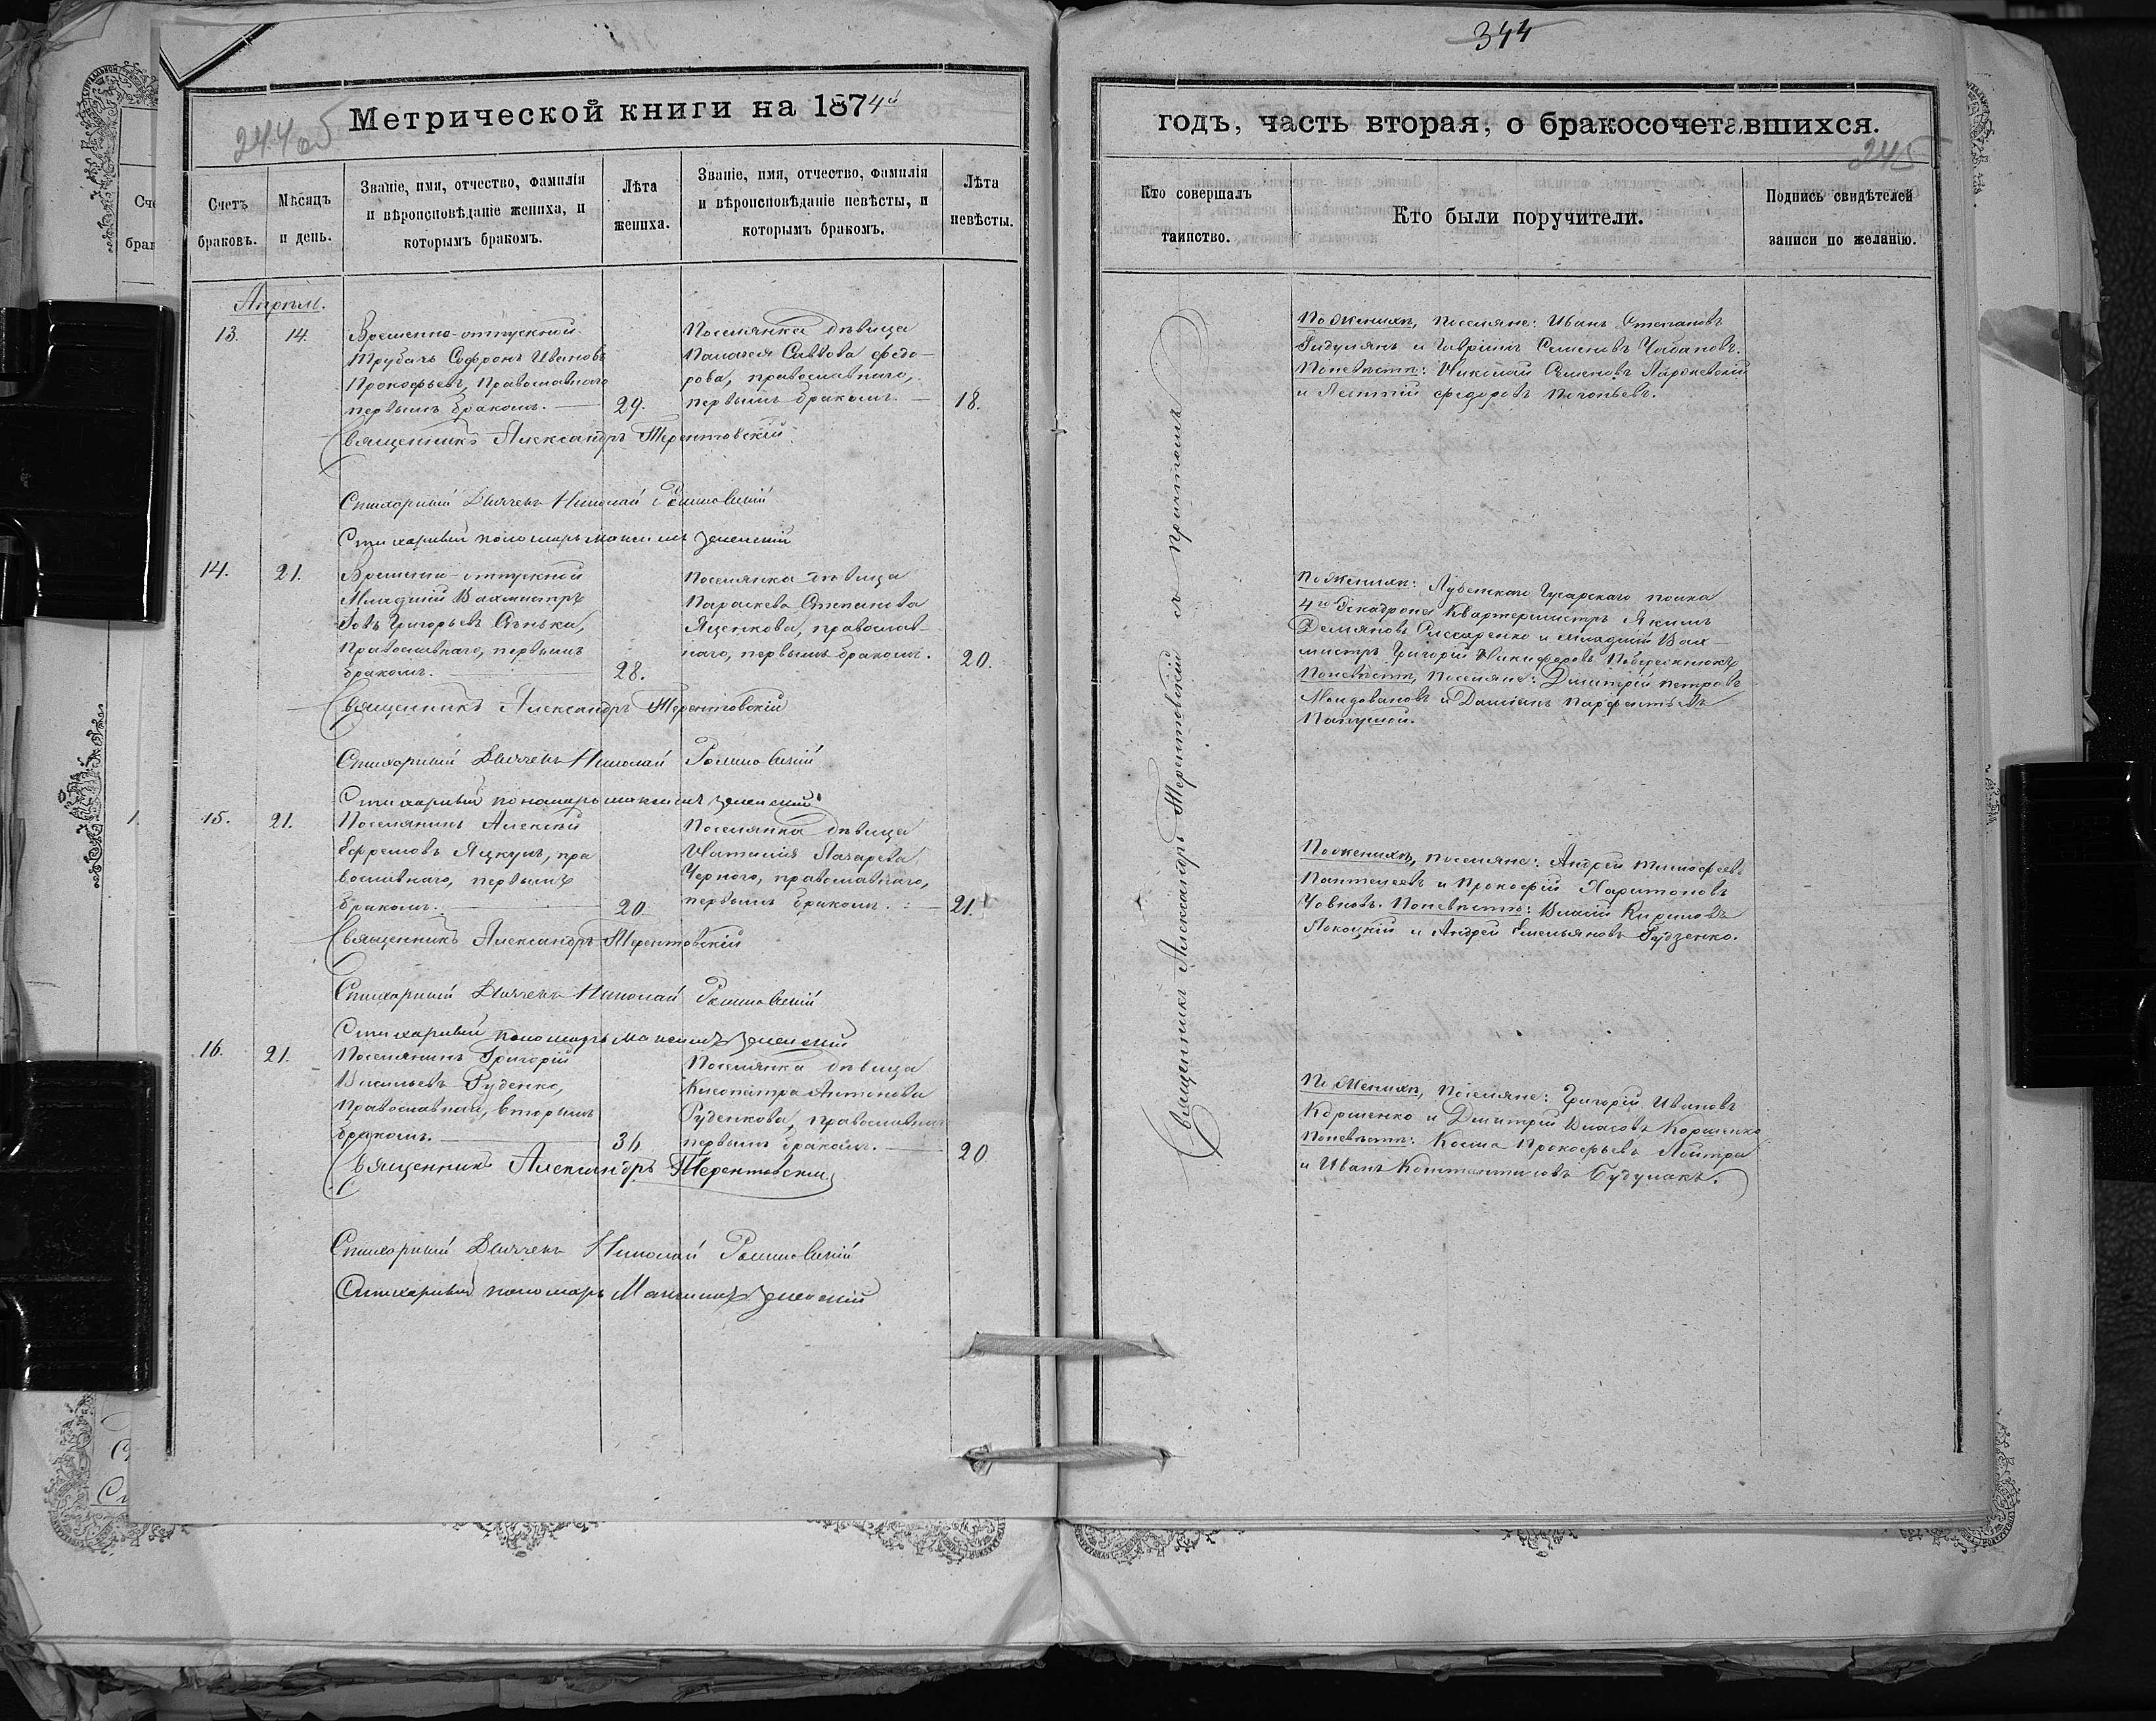 344
Метрической книги на 1874й
244об
годъ, часть вторая, о бракосочетавшихся.
245
Счетъ браковъ.
Мѣсяцъ и день.
Званіе, имя, отчество, фамилія
и вѣроисповѣданіе жениха, и
которымъ бракомъ.
Лѣта
жениха.
Званіе, имя, отчество, фамилія
и вѣроисповѣданіе невѣсты, и
которымъ бракомъ.
Лѣта
невѣсты.
Кто совершалъ
таинство.
Кто были поручители.
Подпись свидѣтелей
записи по желанію.
Апрѣль.
13. 14.
Временно-отпускной
Трубачъ Софронъ Ивановъ
Прокофьевъ, Православнаго
первымъ бракомъ. 29.
Поселянка дѣвица
Палажея Саввова Федо-
рова, православнаго,
первымъ бракомъ. 18.
Священникъ Александръ Терентовскій
Стихарный Дьячекъ Николай
Стихарный пономарь Максимъ Зеленскій
По женихѣ, поселяне: Иванъ Степановъ
и Гавріилъ Семеновъ Чабановъ.
По невѣстѣ: Николай Семеновъ
и Леонтій Федоровъ
14. 21.
Временно-отпускной
Младшій Вахмистръ
Іовъ Григорьевъ Сѣнька,
Православнаго, первымъ
бракомъ. 28.
Поселянка дѣвица
Параскева Степанова
Яценкова, православ-
наго, первымъ бракомъ. 20.
Священникъ Александръ Терентовскій
Стихарный Дьячекъ Николай
Стихарный пономарь Максимъ Зеленскій
По женихѣ: Лубенскаго Гусарскаго полка
4го Эскадрона Квартермистръ Якимъ
Демяновъ Слюсаренко и младшій Вах-
мистръ Григорій Никифоровъ Побережнюкъ
По невѣстѣ, поселяне: Дмитрій Петровъ
Молдовановъ и Даміанъ Парфентьевъ
Папушой.
15. 21.
Поселянинъ Алексѣй
Ефремовъ Яцкулъ, пра
вославнаго, первымъ
бракомъ. 20.
Поселянка дѣвица
Наталія Лазарева
Черного, православнаго,
первымъ бракомъ. 21.
Священникъ Александръ Терентовскій
Стихарный Дьячекъ Николай
Стихарный пономарь Максимъ Зеленскій
По женихѣ, поселяне: Андрей Тимофеевъ
Пантелеевъ и Прокофій Харитоновъ
Човновъ. По невѣстѣ: Власій Кириловъ
и Андрей Емельяновъ Гудзенко.
16. 21.
Поселянинъ Григорій
Васильевъ Руденко,
Православнаго, вторымъ
бракомъ. 36
Поселянка дѣвица
Клеопатра Антонова
Руденкова, православнаго
первымъ бракомъ. 20
Священникъ Александръ Терентовскій
Стихарный Дьячекъ Николай
Стихарный пономарь Максимъ Зеленскій
По женихѣ, поселяне: Григорій Ивановъ
Коршенко и Дмитрій Власовъ Коршенко
По невѣстѣ: Косма Прокофьевъ
и Иванъ Константиновъ Будулакъ.
Священникъ Александръ Терентовскій съ причтомъ